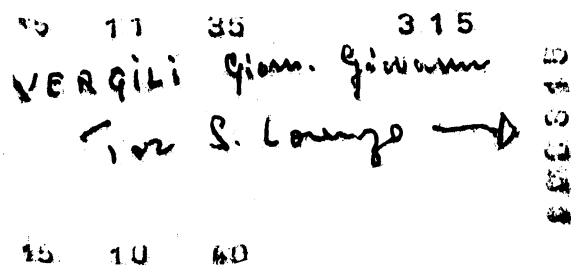 15 11 35 315
VERGILI Giom. Giovanni
Tor S. Lorenzo
15 10 40